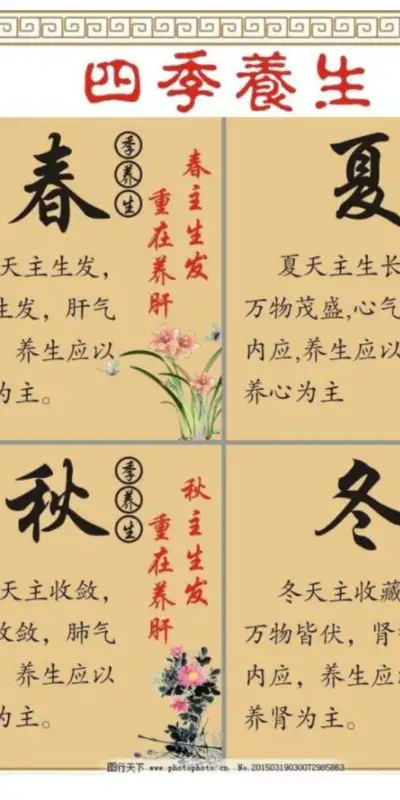 四季養生
春
季养生
春主生发
重在养肝
天主生发，
生发，肝气
养生应以
为主。
夏
夏天主生长
万物茂盛,心气
内应,养生应以
养心为主
秋
季养生
秋主生发
重在养肝
天主收敛，
收敛，肺气
养生应以
为主。
冬
冬天主收藏
万物皆伏，肾
内应，养生应
养肾为主。
图行天下 www.photophoto.cn No.20150319030072985863